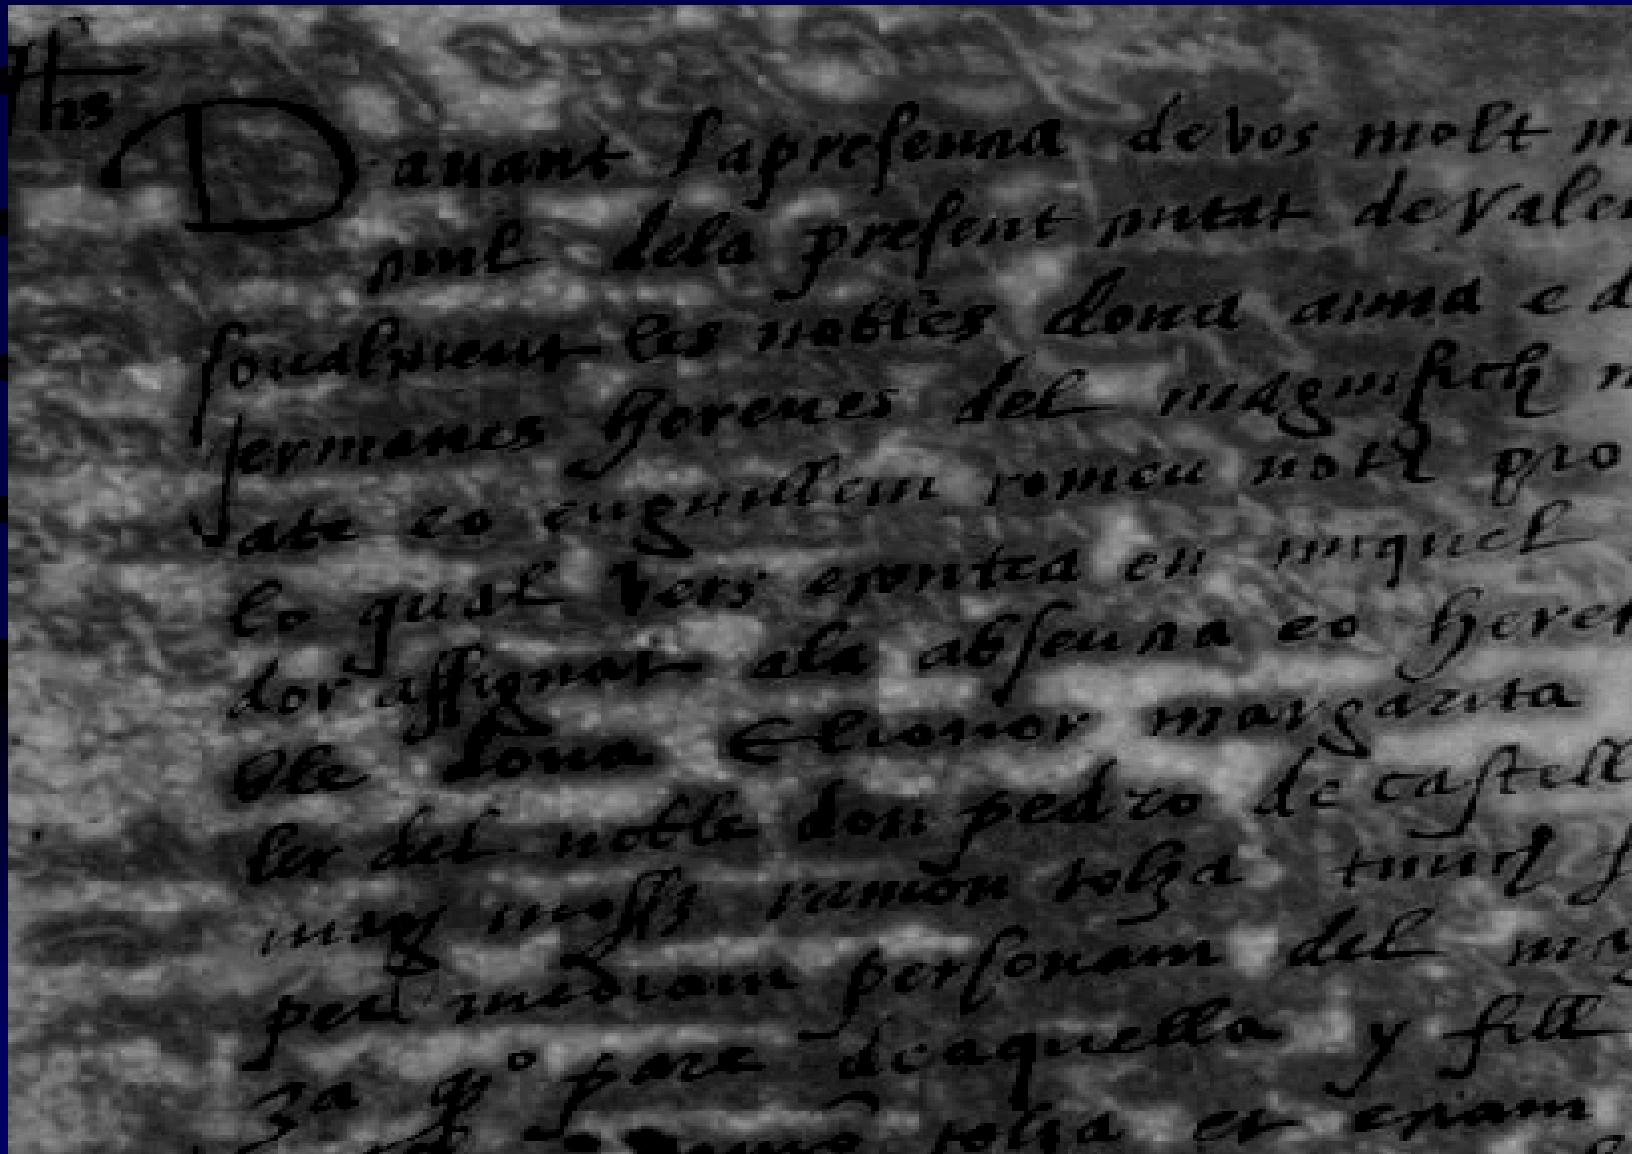 Jhs
Dauant la presencia de vos molt m
ciuil dela present ciutat de Valen
sonalment les nobles dona anna e d
jermanes hereues del magnifich m
ate eo en guillem romeu noth pro
lo qual vers e contra en miquel
dor assignat ala absencia eo heret
ble dona Elionor margarita
ler del noble don pedro de castell
mag moss ramon tolza
per mediam personam del mag
3ª pare de aquella y fill
tolza et eciam